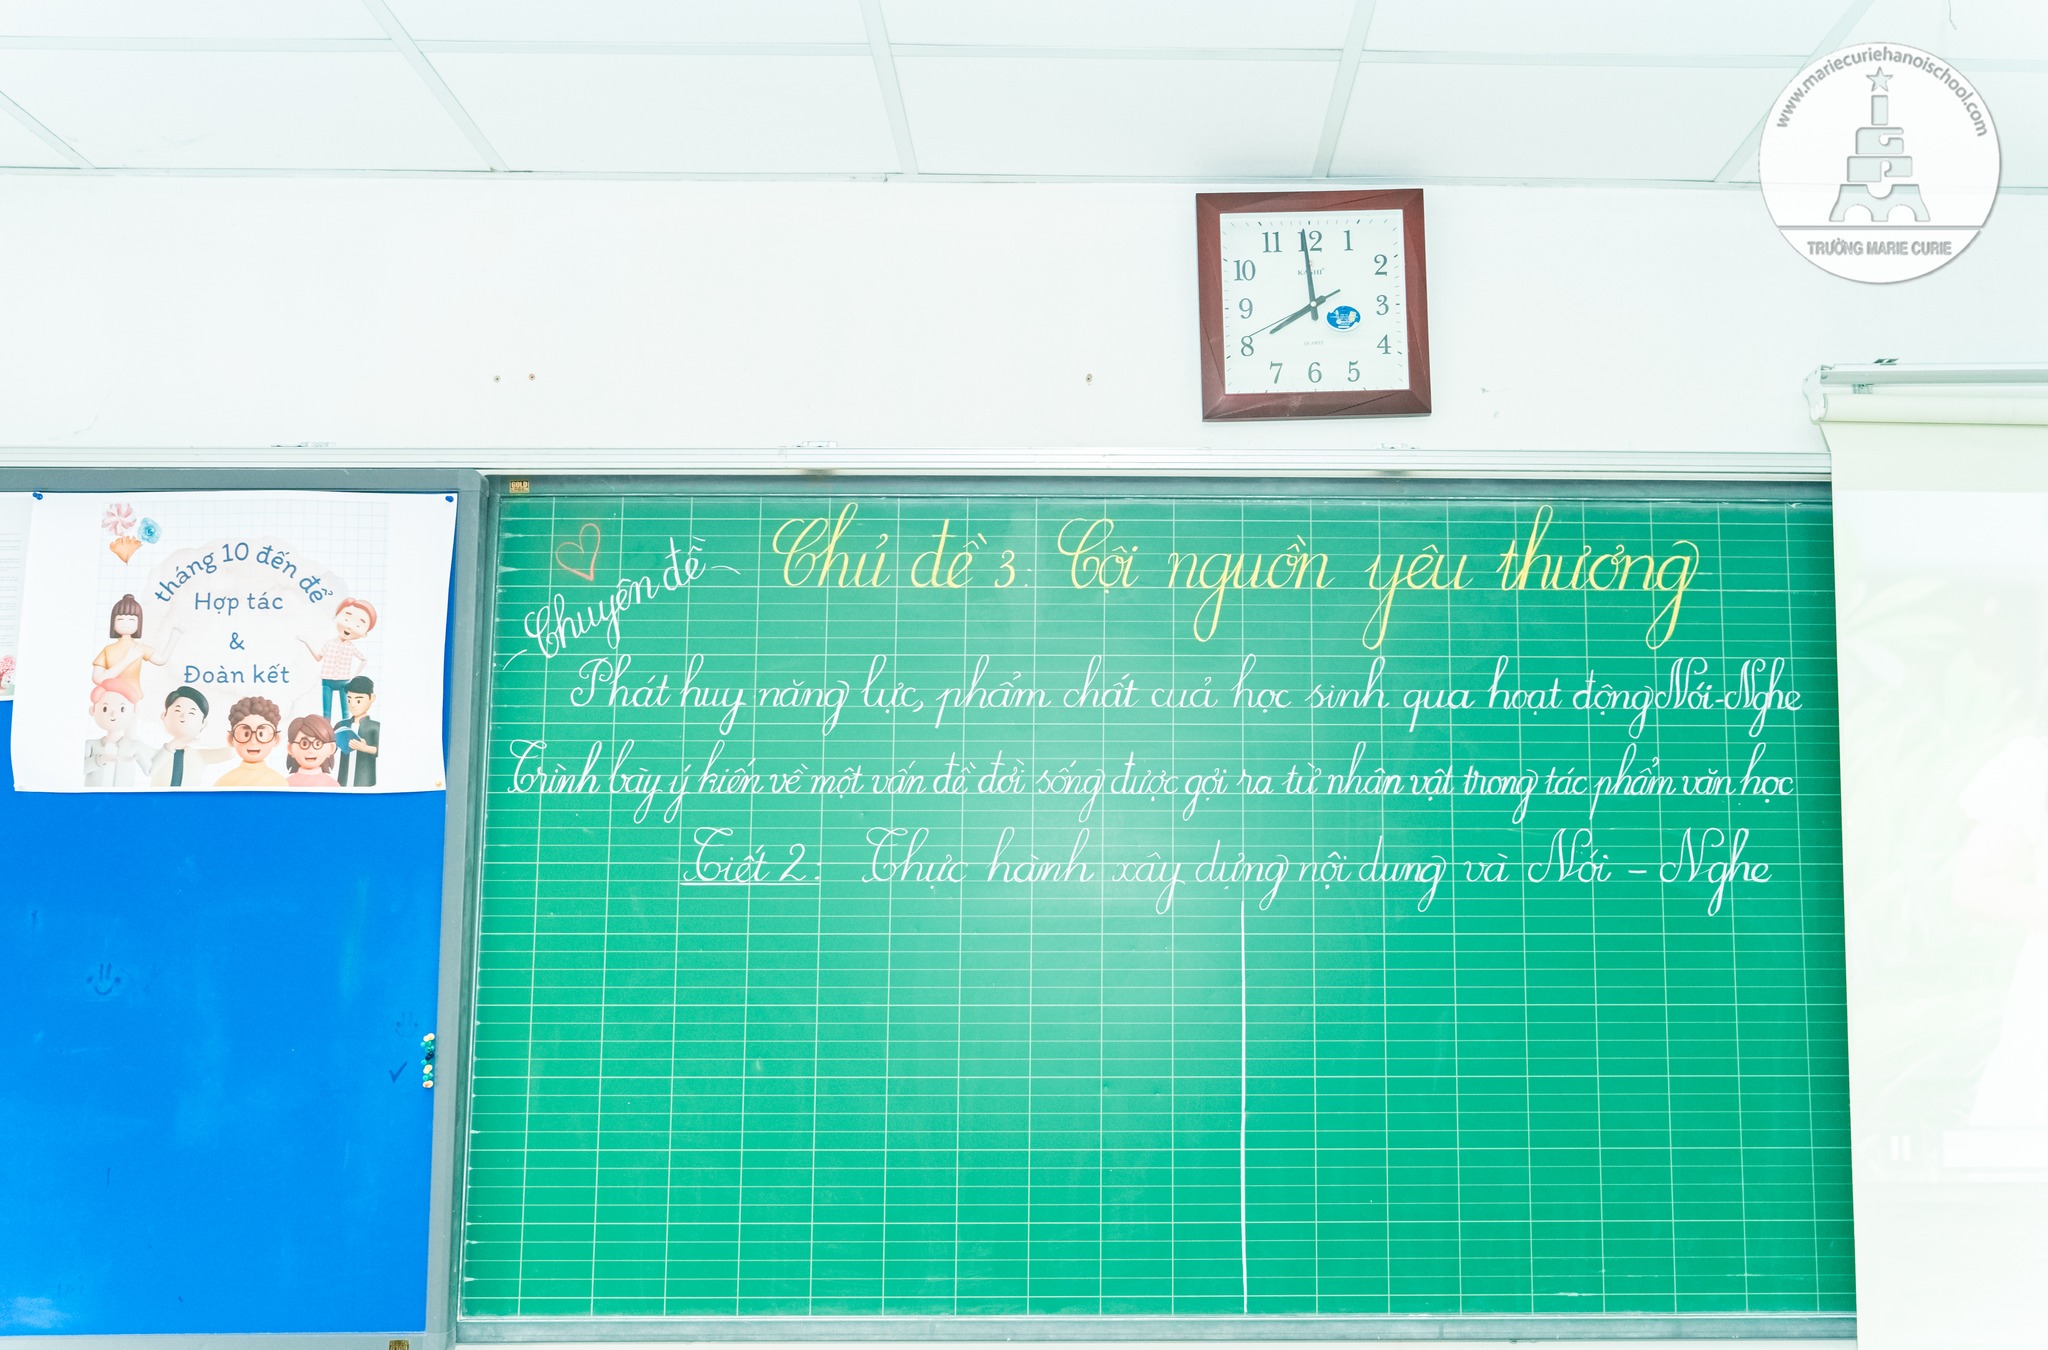 www.mariecuriehanoischool.com
TRƯỜNG MARIE CURIE
11 12 1
10 2
9 3
8 4
7 6 5
KASHI
QUARTZ
GOLD
tháng 10 đến để
Hợp tác
&
Đoàn kết
Chủ đề 3: Cội nguồn yêu thương
Chuyên đề
Phát huy năng lực, phẩm chất cuả học sinh qua hoạt động Nói-Nghe
Trình bày ý kiến về một vấn đề đời sống được gợi ra từ nhân vật trong tác phẩm văn học
Tiết 2: Thực hành xây dựng nội dung và Nói - Nghe